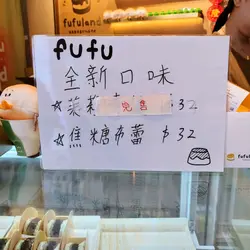 fufuland
fufu
全新口味
☆茉莉 完售 $32
☆焦糖布蕾 $32
fufuland